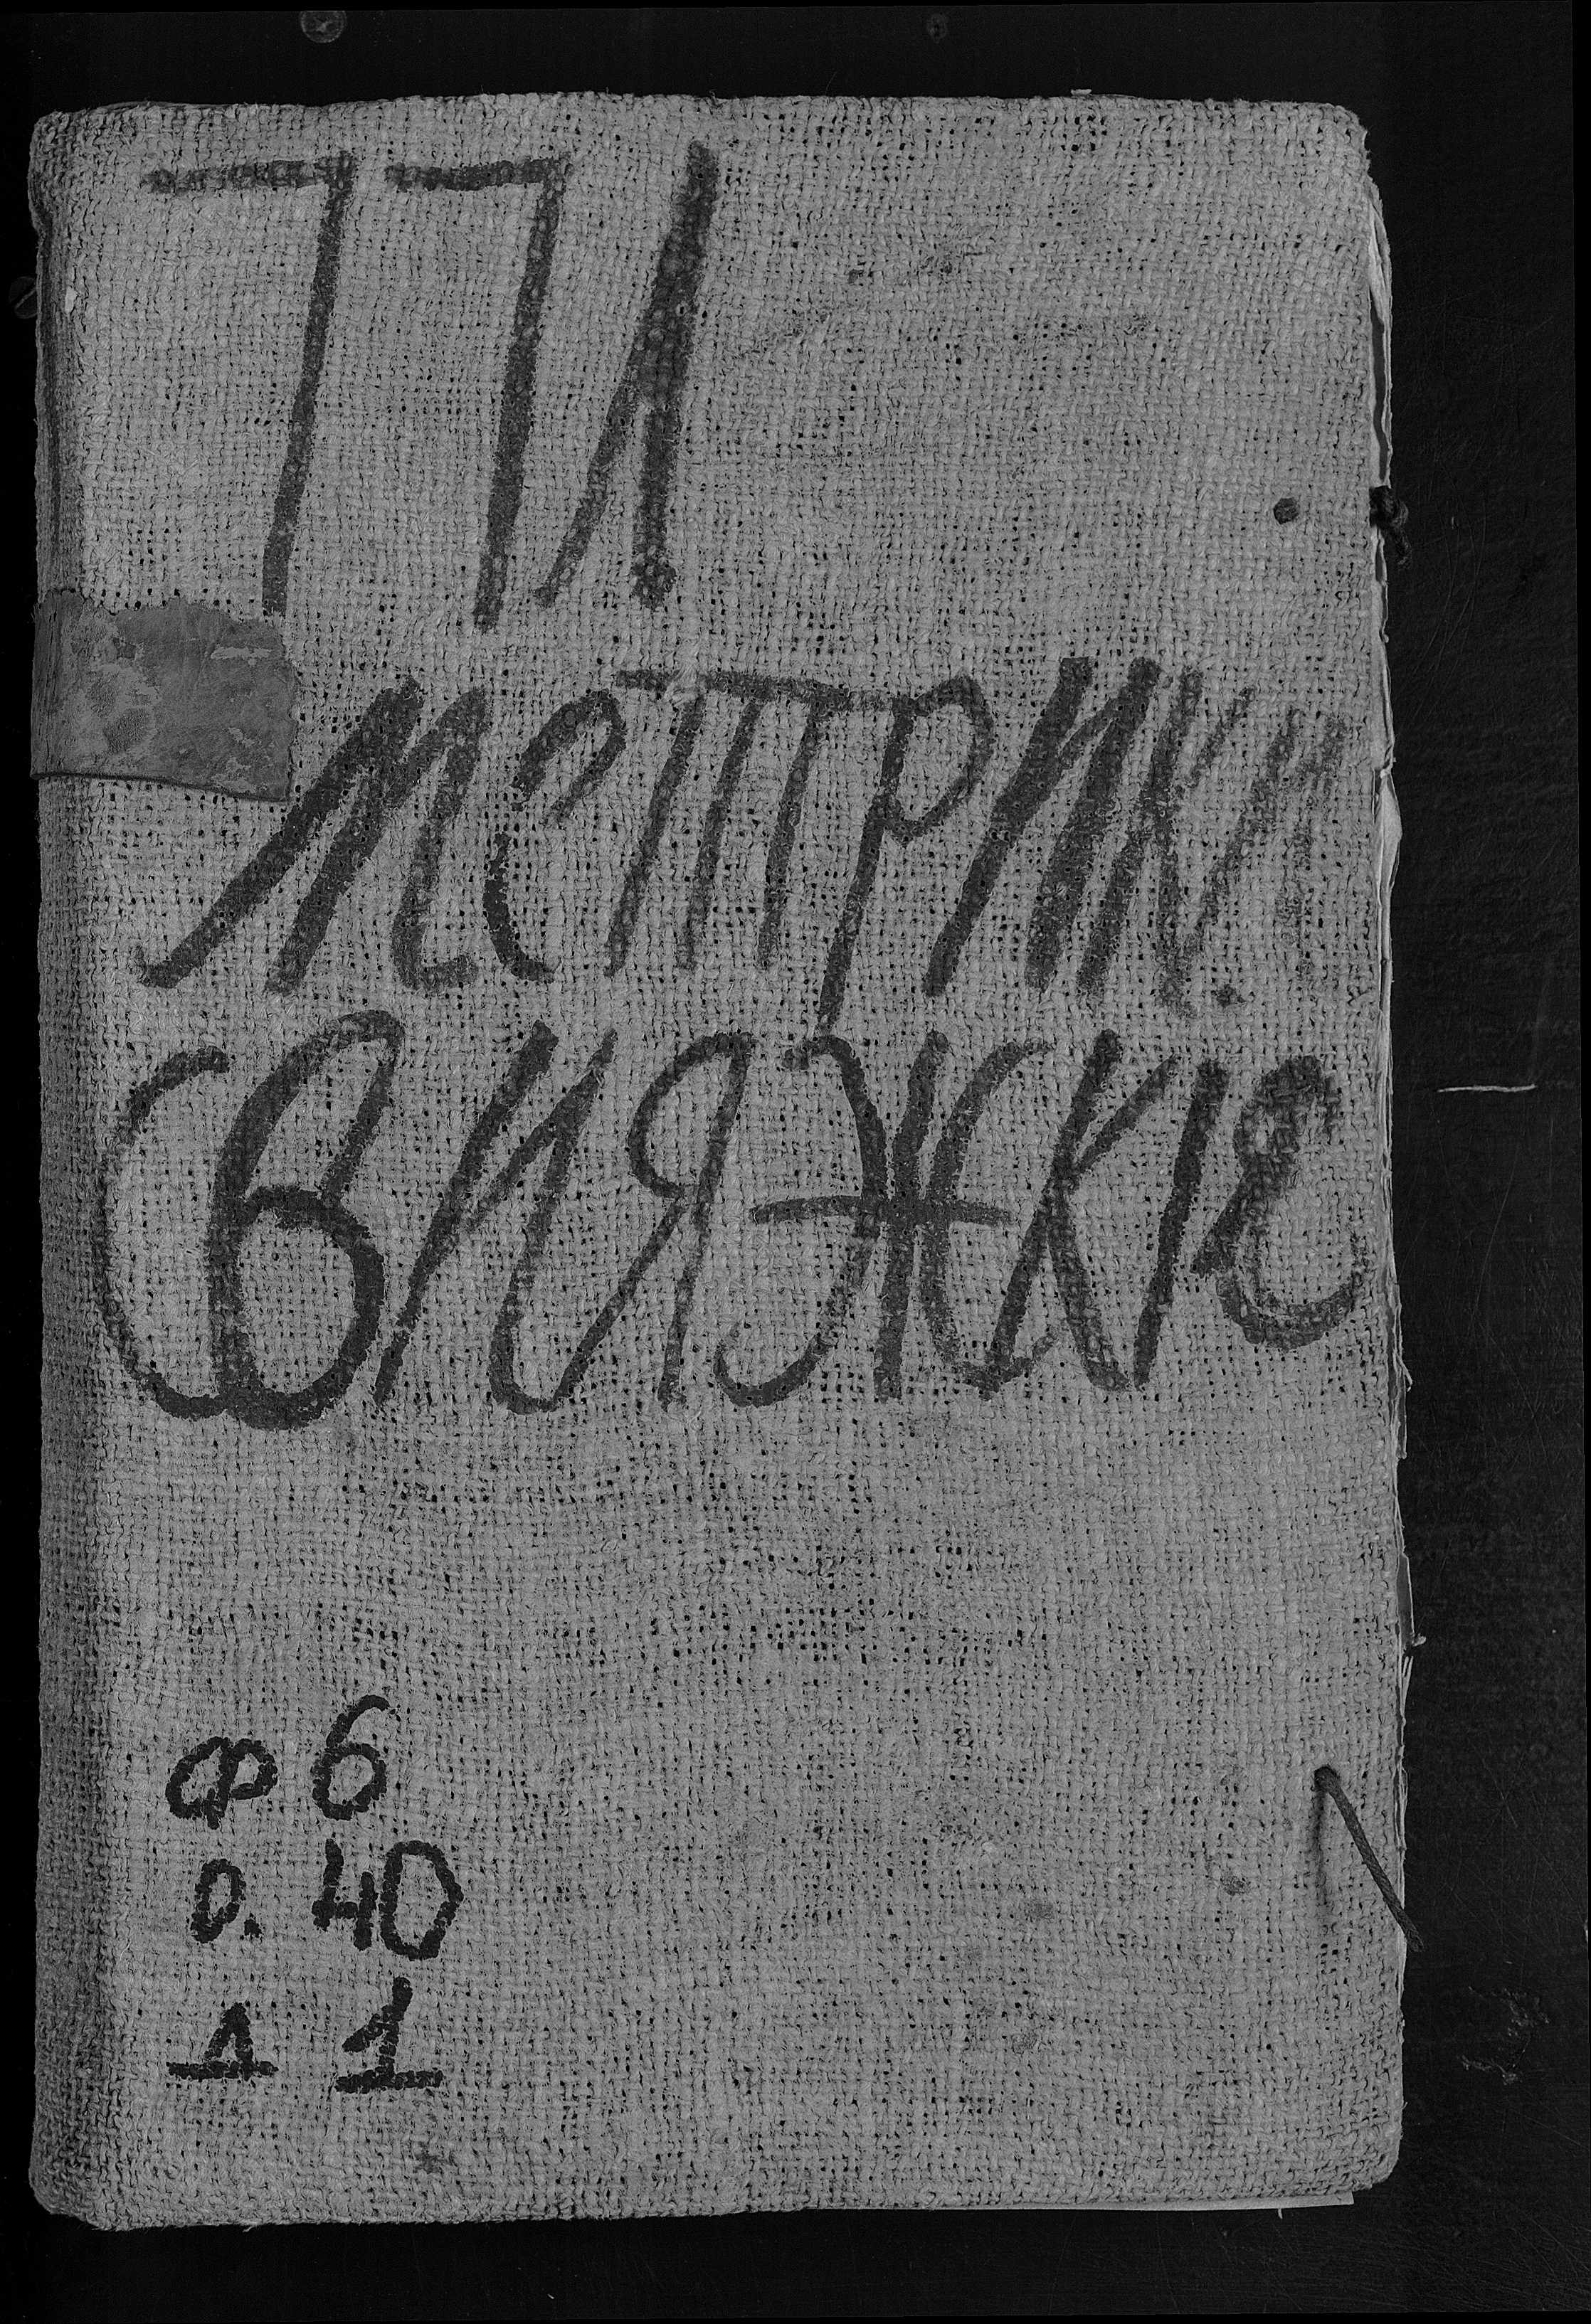 771
метрич.
Свияжскіе
ф 6
о. 40
д 1